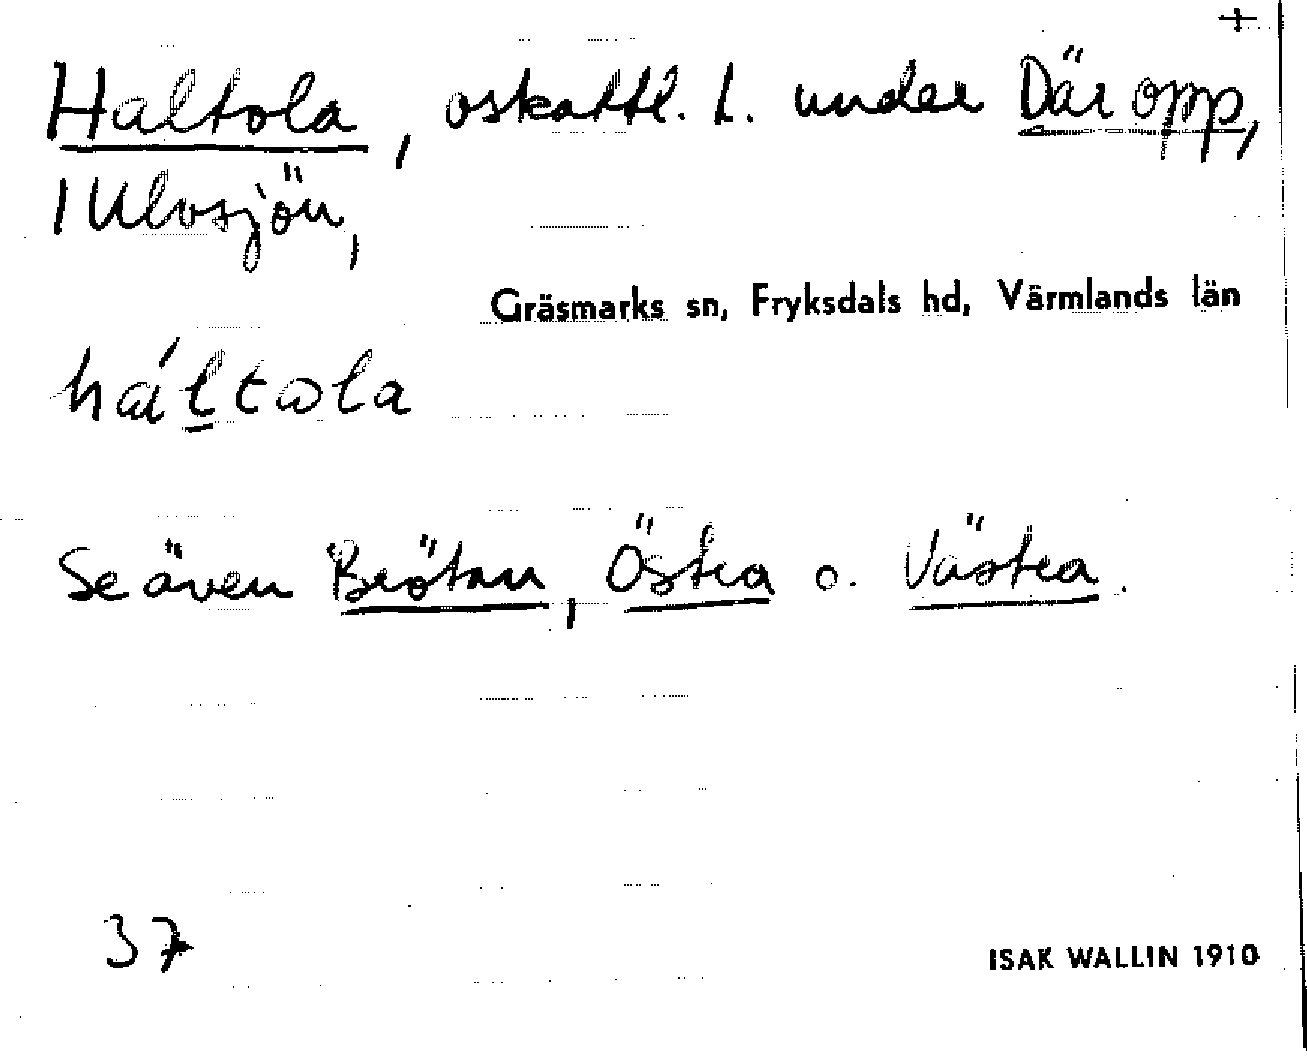 +
Haltola, oskattl. l. under Där opp,
1 Ulvsjön,
Gräsmarks sn, Fryksdals hd, Värmlands län
háltωla
Se även Brötan, Östra o. Västra.
37
ISAK WALLIN 1910